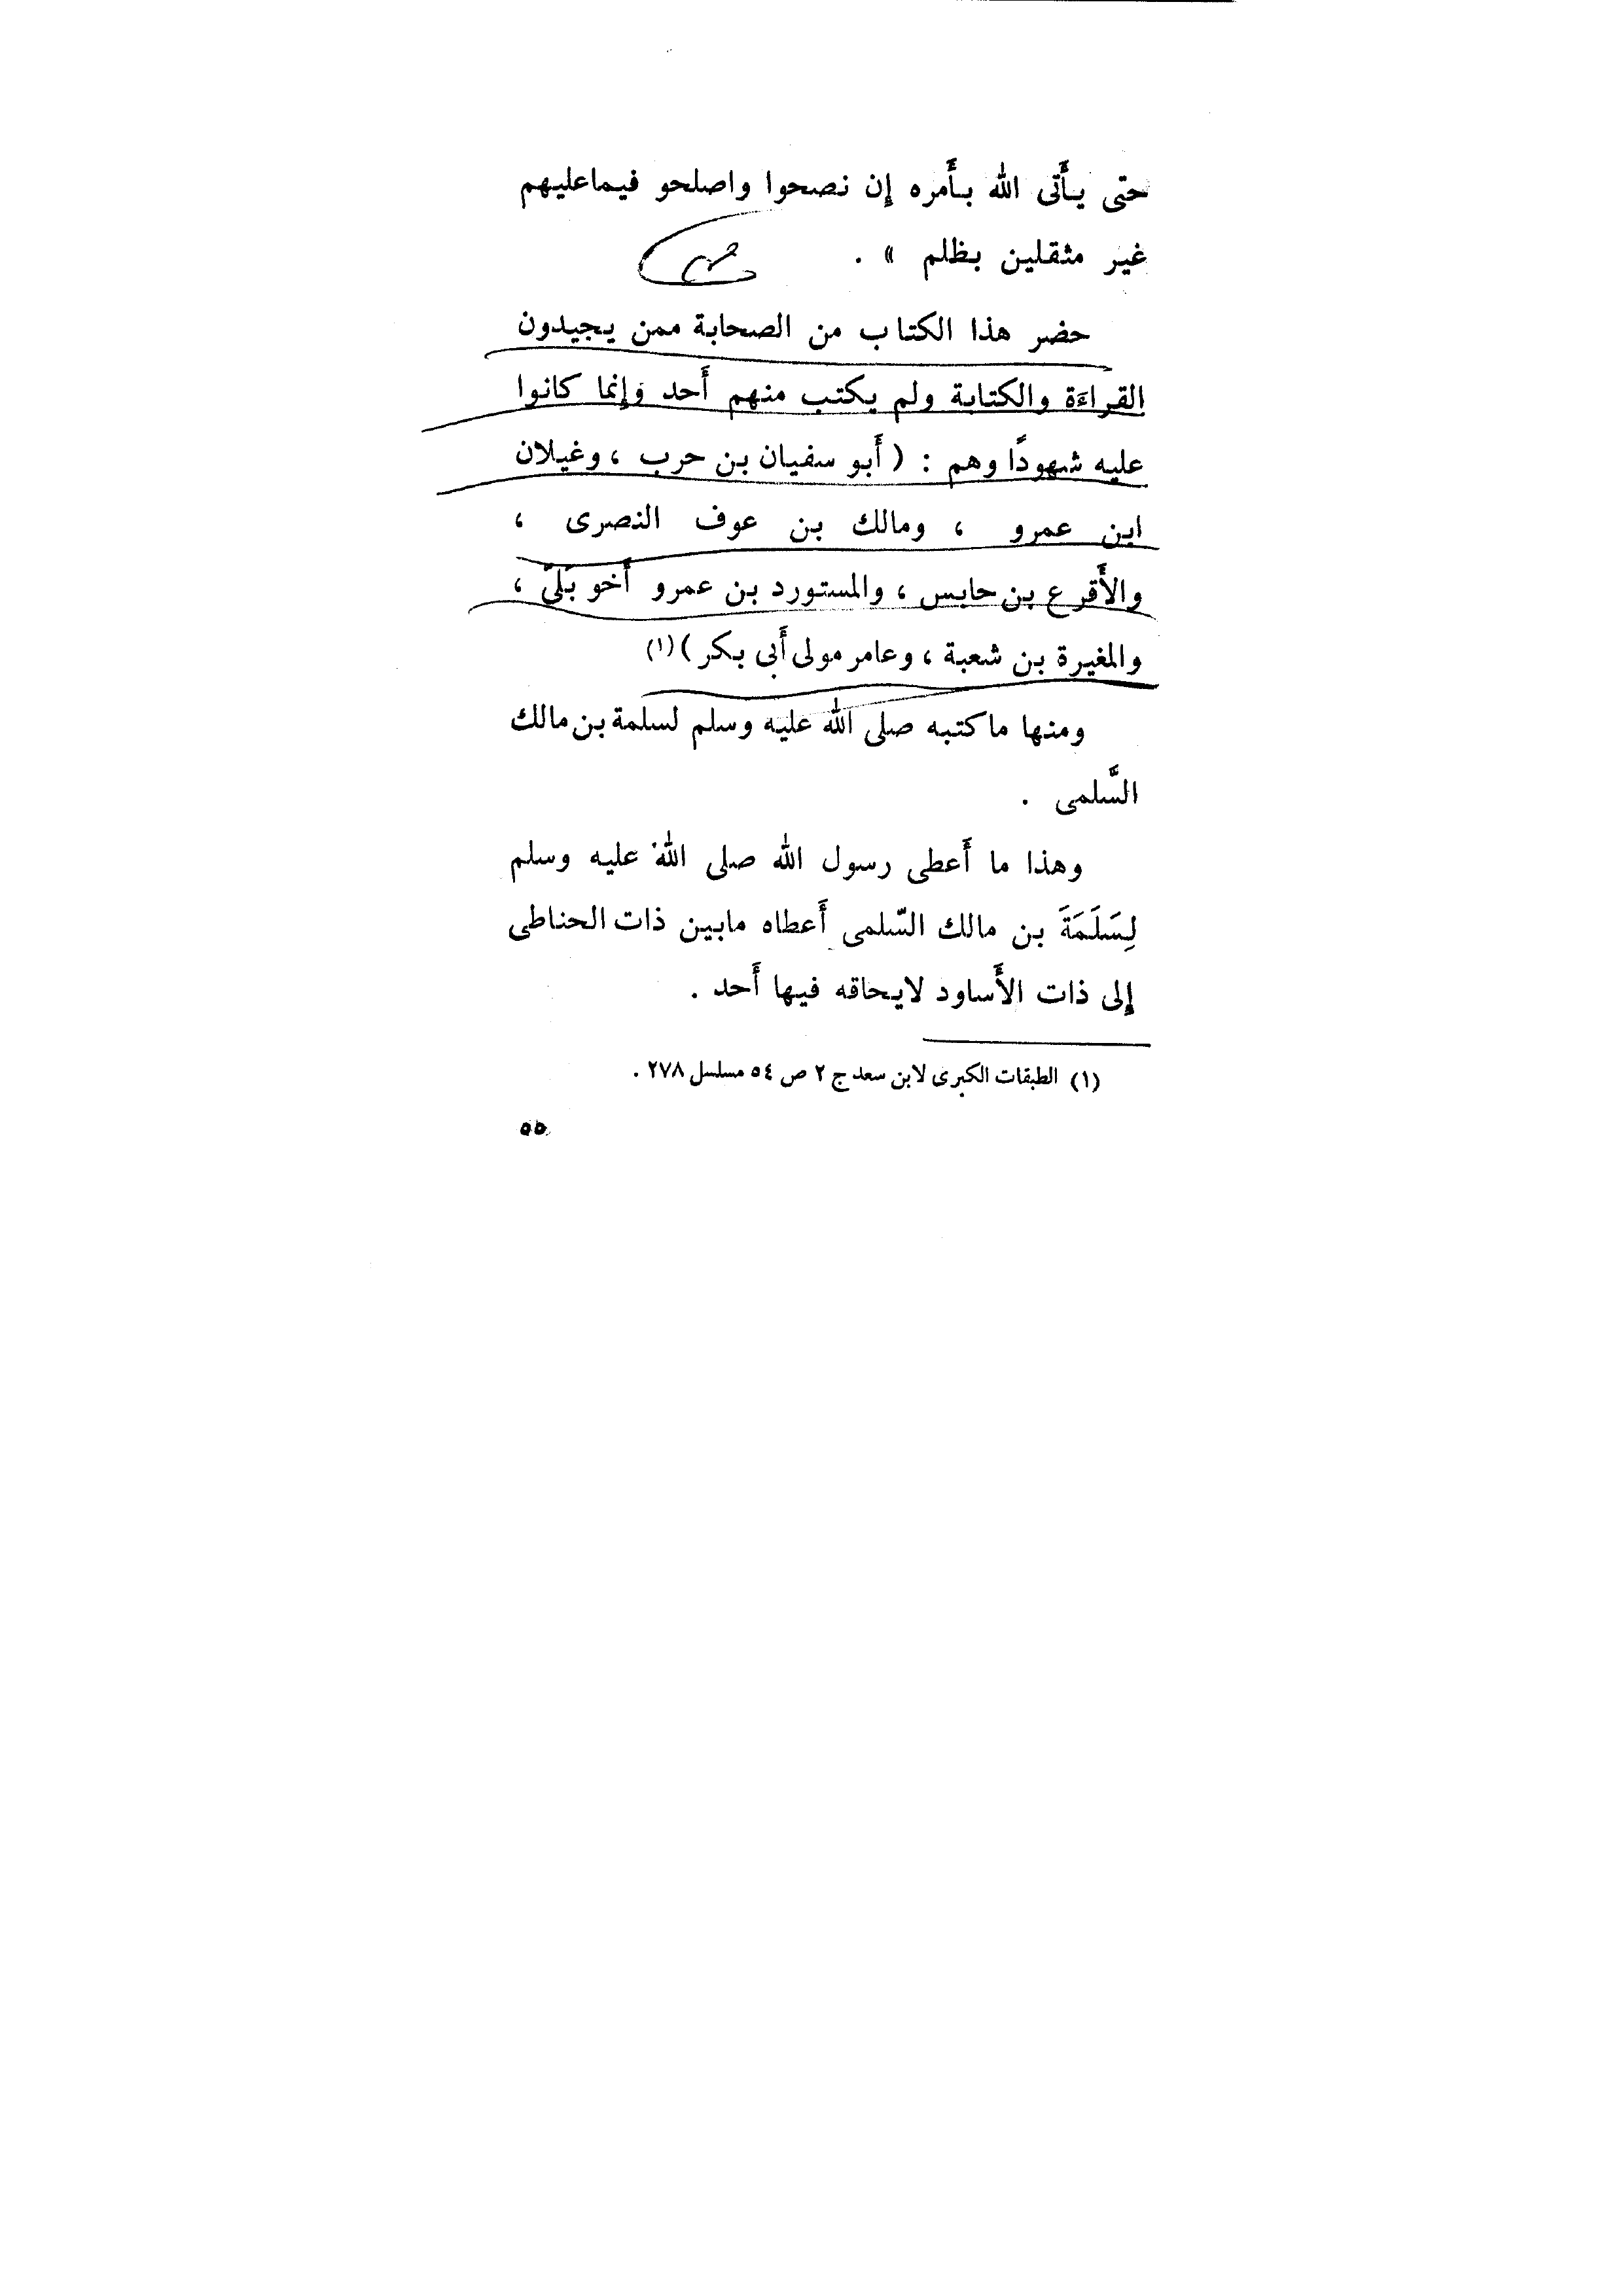 حتى يأتى الله بأمره إن نصحوا واصلحو فيماعليهم
غير مثقلين بظلم » .
حضر هذا الكتاب من الصحابة ممن يجيدون
القراءة والكتابة ولم يكتب منهم أحد وإنما كانوا
عليه شهودًا وهم : ( أبو سفيان بن حرب ، وغيلان
ابن عمرو ، ومالك بن عوف النصرى ،
والأقرع بن حابس ، والمستورد بن عمرو أخو بَلىّ ،
والمغيرة بن شعبة ، وعامر مولى أبى بكر )(١)
ومنها ماكتبه صلى الله عليه وسلم لسلمة بن مالك
السَّلمى .
وهذا ما أعطى رسول الله صلى الله عليه وسلم
لِسَلَمَةَ بن مالك السّلمى أعطاه مابين ذات الحناطى
إلى ذات الأساود لايحاقه فيها أحد .
(١) الطبقات الكبرى لابن سعد ج ٢ ص ٥٤ مسلسل ٢٧٨ .
٥٥